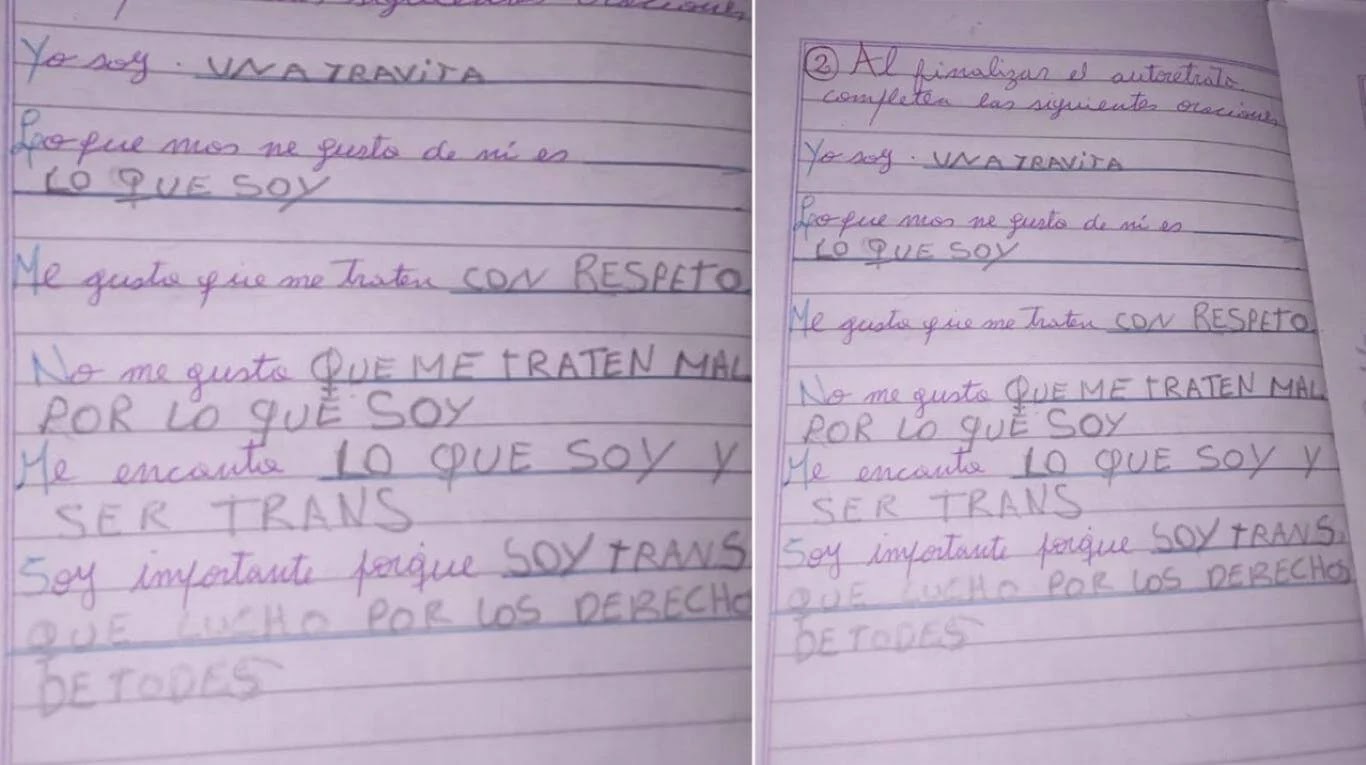 siguientes oraciones
Yo soy. UNA TRAVITA
Lo que mas me gusta de mi es
LO QUE SOY
Me gusta que me traten CON RESPETO
No me gusta QUE ME TRATEN MAL
POR LO QUE SOY
Me encanta LO QUE SOY Y
SER TRANS
Soy importante porque SOY TRANS
QUE LUCHO POR LOS DERECHO
DE TODES
② Al finalizar el autoretrato
completen las siguientes oraciones
Yo soy. UNA TRAVITA
Lo que mas me gusta de mi es
LO QUE SOY
Me gusta que me traten CON RESPETO
No me gusta QUE ME TRATEN MAL
POR LO QUE SOY
Me encanta LO QUE SOY Y
SER TRANS
Soy importante porque SOY TRANS
QUE LUCHO POR LOS DERECHOS
DE TODES